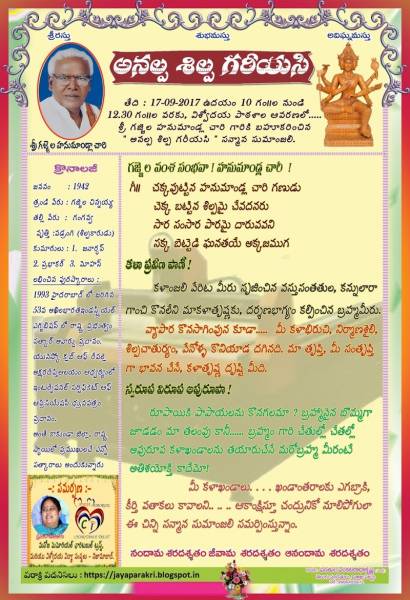 శ్రీరస్తు
శుభమస్తు
అవిఘ్నమస్తు
అనల్ప శిల్ప గరీయసి
తేది : 17-09-2017 ఉదయం 10 గం॥ల నుండి
12.30 గం॥ల వరకు, విశ్వోదయ పాఠశాల ఆవరణలో.....
శ్రీ గజ్జెల హనుమాండ్ల చారి గారికి బహూకరించిన
" అనల్ప శిల్ప గరీయసి " సన్మాన సుమాంజలి.
శ్రీ గజ్జెల హనుమాండ్ల చారి
క్రొనాలజీ
జననం : 1942
తండ్రి పేరు : గజ్జెల చిన్నయ్య
తల్లి పేరు : గంగవ్వ
వృత్తి :వడ్రంగి (శిల్పకారుడు)
కుమారులు : 1. జనార్ధన్
2. ప్రభాకర్ 3. మోహన్
లభించిన పురస్కారాలు :
1993 హైదరాబాద్ లో జరిగిన
53వ అఖిలభారతఇండస్ట్రియల్
ఎగ్జిబిషన్ లో రాష్ట్ర ప్రభుత్వం
సత్కార్ అవార్డు ప్రధానం.
ఇంటర్నేషనల్ సర్టిఫికెట్ ఆఫ్
ప్రధానం.
అంతే కాకుండా జిల్లా, రాష్ట్ర
స్థాయిలో ప్రముఖులచే ఎన్నో
సత్కారాలు అందుకున్నారు
గజ్జెల వంశ సంభవా ! హనుమాండ్ల చారీ !
గీ॥ చక్కవుట్టిన హనుమాండ్ల చారి గణుడు
చెక్క బట్టిన శిల్పమై చేవదనరు
సార సంసార పారమై దారువవని
నక్క బెట్టెడి ఘనతయే అక్కజముగ
కళా ప్రవీణ పాణీ !
కళాంజలి పేరిట మీరు సృజించిన వస్తుసంతతుల, కన్నులారా
గాంచి కొనలేని మాకళాతృష్ణకు, దర్శణభాగ్యం కల్పించిన బ్రహ్మమీరు.
వ్యాపార కొనసాగింపున కూడా..... మీ కళాభిరుచి, నిర్మాణశైలి,
శిల్పచాతుర్యం, వేనోళ్ళ కొనియాడ దగినది. మా తృప్తి, మీ సంతృప్తి
గా భావన చేసే, కళాతృష్ణ దృష్టి మీది.
స్వరూప విరూప అపురూపా !
రూపాయికి పాపాయలను కొనగలమా ? బ్రహ్మానైన బొమ్మగా
జాడడం మా తలంపు కానీ...... బ్రహ్మం గారి చేతుల్లో చేతల్లో
అపురూప కళాఖండాలను తయారుచేసే మరోబ్రహ్మ మీరంటే
అతిశయోక్తి కాదేమో!
మీ కళాఖండాలు. . . . . ఖండాంతరాలకు ఎగబ్రాకి,
కీర్తి పతాకలు కావాలని.... ఆకాంక్షిస్తూ చంద్రునికో నూలిపోగులా
ఈ చిన్ని సన్మాన సుమాంజలి సమర్పిస్తున్నాం.
నందామ శరదశ్శతం జీవామ శరదశ్శతం ఆనందామ శరదశ్శతం
-: సమర్పణ :-
పరాక్రి పదనిసలు : https://jayaparakri.blogspot.in